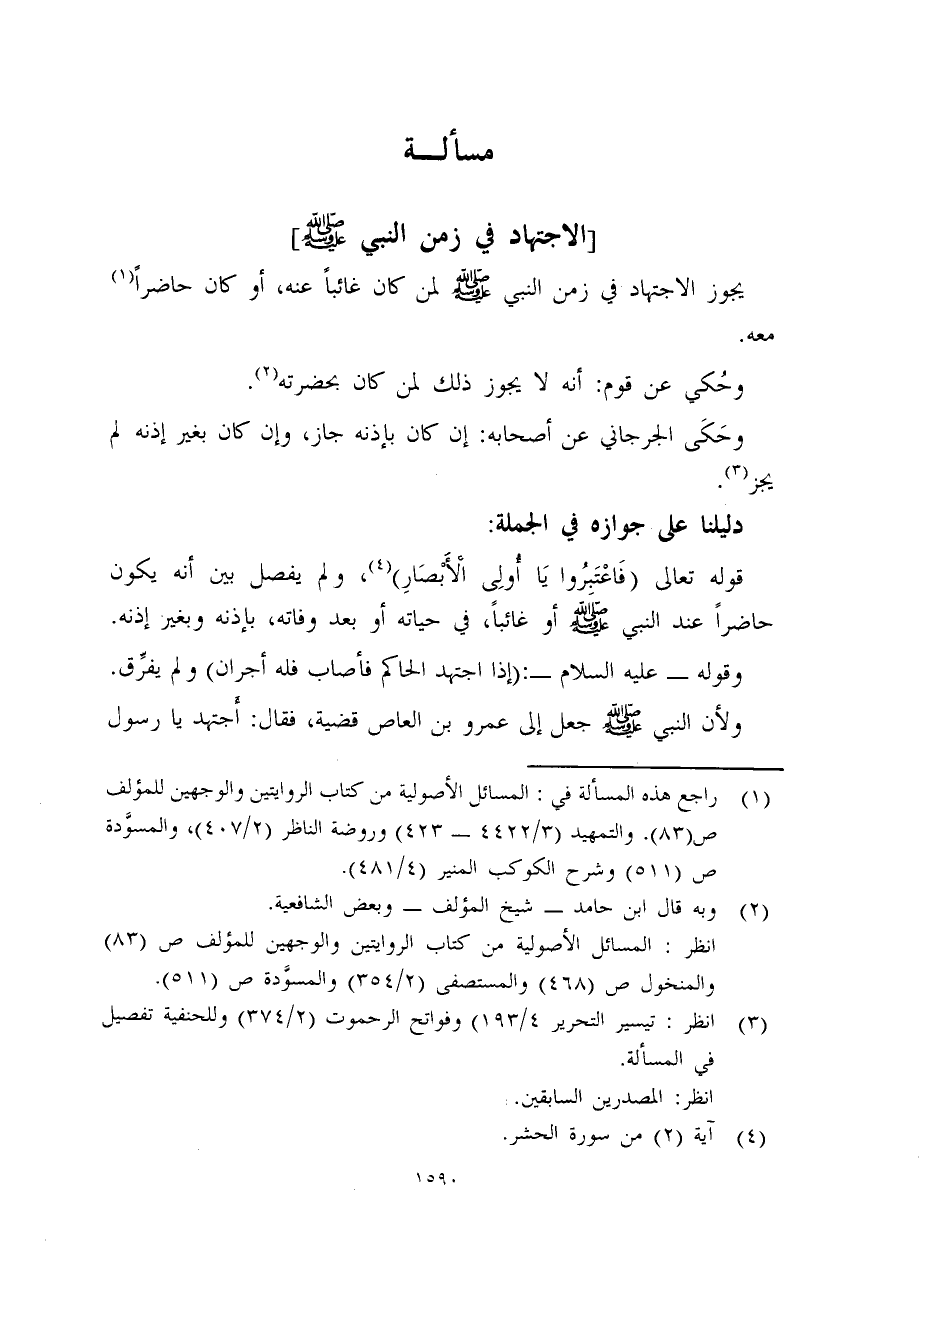 مسألـــة
[الاجتهاد في زمن النبي ﷺ]
يجوز الاجتهاد في زمن النبي ﷺ لمن كان غائباً عنه، أو كان حاضراً(١)
معه.
وحُكي عن قوم: أنه لا يجوز ذلك لمن كان بحضرته(٢).
وحَكَى الجرجاني عن أصحابه: إن كان بإذنه جاز، وإن كان بغير إذنه لم
يجز(٣).
دليلنا على جوازه في الجملة:
قوله تعالى (فَاعْتَبِرُوا يَا أُولِى الْأَبْصَارِ)(٤)، ولم يفصل بين أنه يكون
حاضراً عند النبي ﷺ أو غائباً، في حياته أو بعد وفاته، بإذنه وبغير إذنه.
وقوله ــ عليه السلام ــ:(إذا اجتهد الحاكم فأصاب فله أجران) ولم يفرِّق.
ولأن النبي ﷺ جعل إلى عمرو بن العاص قضية، فقال: أَجتهد يا رسول
(١) راجع هذه المسألة في : المسائل الأصولية من كتاب الروايتين والوجهين للمؤلف
ص(٨٣). والتمهيد (٤٤٢٢/٣ ــ ٤٢٣) وروضة الناظر (٤٠٧/٢)، والمسوَّدة
ص (٥١١) وشرح الكوكب المنير (٤٨١/٤).
(٢) وبه قال ابن حامد ــ شيخ المؤلف ــ وبعض الشافعية.
انظر : المسائل الأصولية من كتاب الروايتين والوجهين للمؤلف ص (٨٣)
والمنخول ص (٤٦٨) والمستصفى (٣٥٤/٢) والمسوَّدة ص (٥١١).
(٣) انظر : تيسير التحرير ١٩٣/٤) وفواتح الرحموت (٣٧٤/٢) وللحنفية تفصيل
في المسألة.
انظر: المصدرين السابقين.
(٤) آية (٢) من سورة الحشر.
١٥٩٠